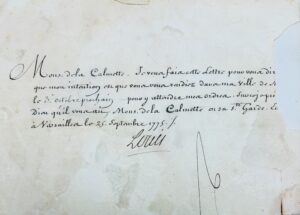 Mons. de la Calmette. Je vous fais cette Lettre pour vous dire
que mon intention est que vous vous rendiez dans ma Ville de
le d'octobre prochain pour y attendre mes ordres. Sur ce je prie
Dieu qu'il vous ait, Mons. de la Calmette en sa Ste Garde.
à Versailles le 25. Septembre 1775.
Louis